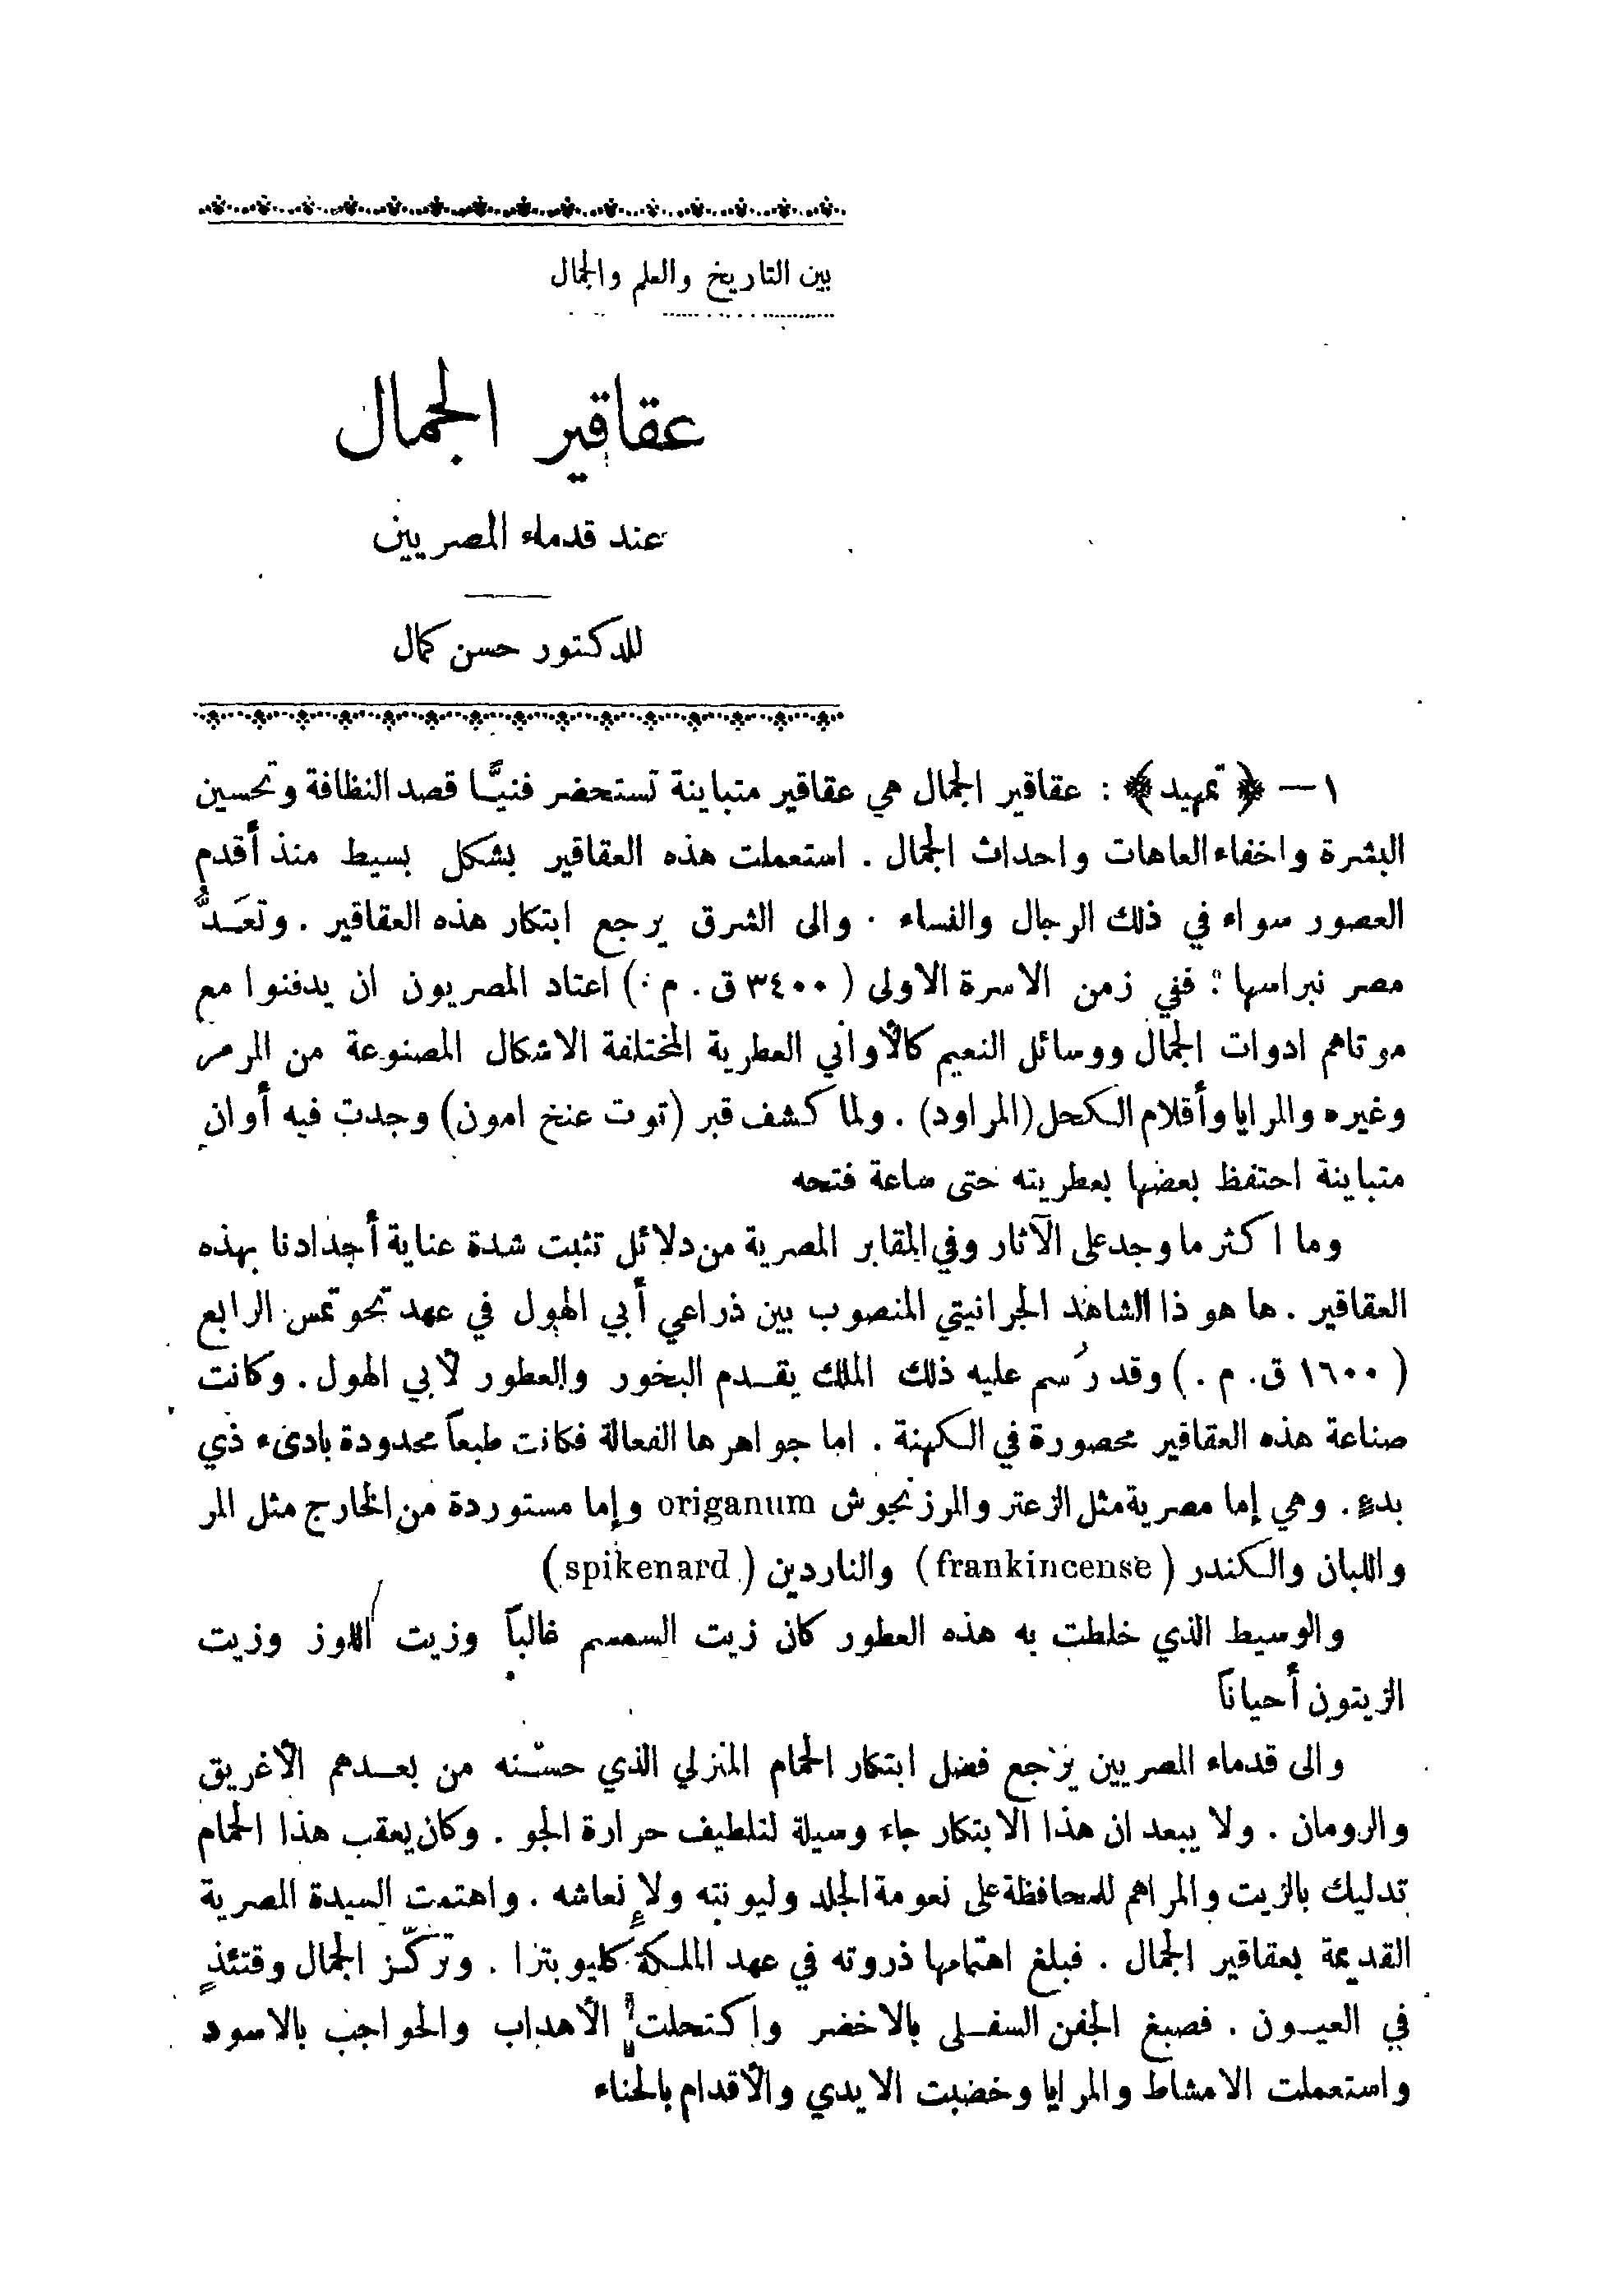 بين التاريخ والعلم والجمال
عقاقير الجمال
عند قدماء المصريين
للدكتور حسن كمال
١ — ﴿ تمهيد ﴾ : عقاقير الجمال هي عقاقير متباينة تستحضر فنيًّا قصد النظافة وتحسين
البشرة واخفاء العاهات واحداث الجمال . استعملت هذه العقاقير بشكل بسيط منذ أقدم
العصور سواء في ذلك الرجال والنساء . والى الشرق يرجع ابتكار هذه العقاقير . وتعَدُّ
مصر نبراسها : ففي زمن الاسرة الاولى ( ٣٤٠٠ ق . م . ) اعتاد المصريون ان يدفنوا مع
موتاهم ادوات الجمال ووسائل النعيم كالأواني العطرية المختلفة الاشكال المصنوعة من المرمر
وغيره والمرايا وأقلام الكحل (المراود) . ولما كشف قبر (توت عنخ امون) وجدت فيه أوانٍ
متباينة احتفظ بعضها بعطريته حتى ساعة فتحه
وما اكثر ما وجد على الآثار وفي المقابر المصرية من دلائل تثبت شدة عناية أجدادنا بهذه
العقاقير . ها هو ذا الشاهد الجرانيتي المنصوب بين ذراعي أبي الهول في عهد تحوتمس الرابع
( ١٦٠٠ ق. م . ) وقد رُسم عليه ذلك الملك يقدم البخور والعطور لأبي الهول . وكانت
صناعة هذه العقاقير محصورة في الكهنة . اما جواهرها الفعالة فكانت طبعاً محدودة بادىء ذي
بدءٍ . وهي إما مصرية مثل الزعتر والمرزنجوش origanum وإما مستوردة من الخارج مثل المر
واللبان والكندر ( frankincense ) والناردين ( spikenard )
والوسيط الذي خلطت به هذه العطور كان زيت السمسم غالباً وزيت اللوز وزيت
الزيتون أحياناً
والى قدماء المصريين يرجع فضل ابتكار الحمام المنزلي الذي حسّنه من بعدهم الأغريق
والرومان . ولا يبعد ان هذا الابتكار جاء وسيلة لتلطيف حرارة الجو . وكان يعقب هذا الحمام
تدليك بالزيت والمراهم للمحافظة على نعومة الجلد وليونته ولإنعاشه . واهتمت السيدة المصرية
القديمة بعقاقير الجمال . فبلغ اهتمامها ذروته في عهد الملكة كليوبتزا . وتركّز الجمال وقتئذٍ
في العيون . فصبغ الجفن السفلى بالاخضر واكتحلت الأهداب والحواجب بالاسود
واستعملت الامشاط والمرايا وخضبت الايدي والأقدام بالحناء